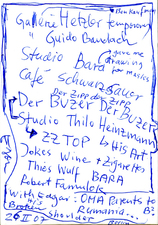 Ben Kaufmann
Gallerie Hetzler temporary
" Guido Baudach
Studio Bara
gave me
a drawing
for
Café Schwarzsauer
Der Zipp der Zipp
Der Buzer Der Buzer
Studio Thilo Heinzmann
↳ ZZ TOP ↳ his Art
Jokes Wine + Zigarettes
Thies Wulf BARA
Robert
With Edgar: OMA Parents to B?
Broken Shoulder Rumania...
26 II 07